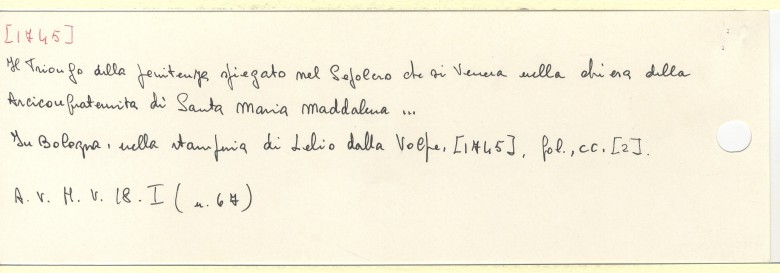 [1745]
Il Trionfo della penitenza spiegato nel Sepolcro che si Venera nella chiesa della
Arciconfraternita di Santa Maria Maddalena ...
In Bologna, nella stamperia di Lelio dalla Volpe, [1745], fol., cc. [2].
A. V. H. V. 18. I ( n. 67)